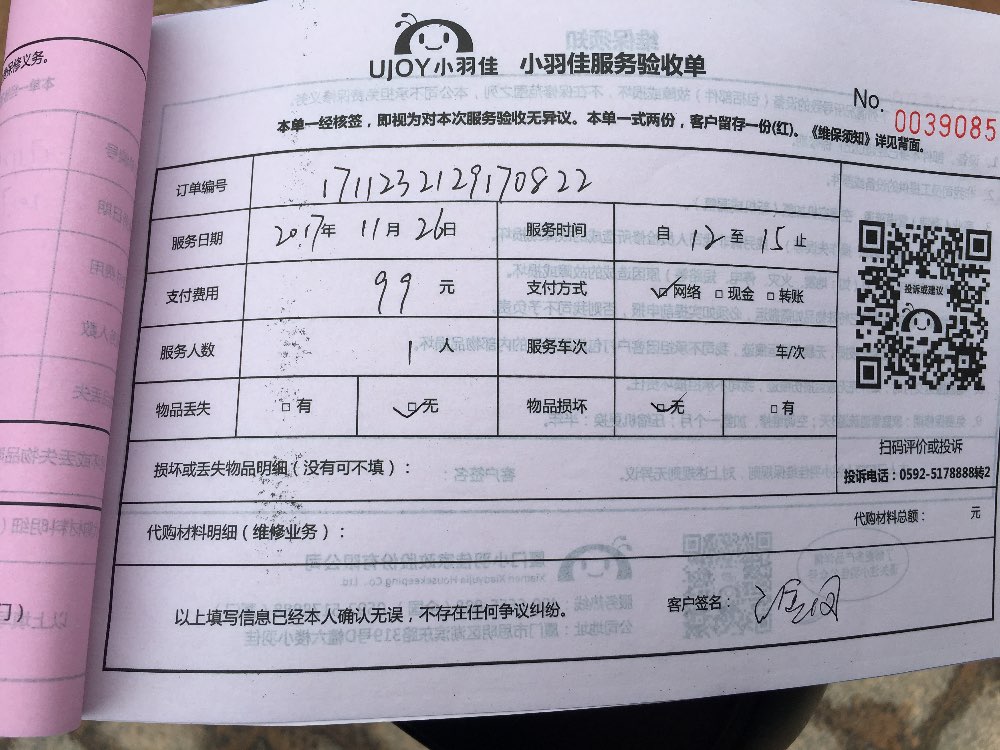 UJOY小羽佳 小羽佳服务验收单
No. 0039085
本单一经核签，即视为对本次服务验收无异议。本单一式两份，客户留存一份(红)。《维保须知》详见背面。
订单编号 1711232129170822
服务日期 2017年 11月 26日 服务时间 自 12 至 15 止
支付费用 99 元 支付方式 网络 现金 转账
服务人数 1 人 服务车次 车/次
物品丢失 有 无 物品损坏 无 有
投诉或建议
扫码评价或投诉
投诉电话：0592-5178888转2
损坏或丢失物品明细（没有可不填）：
代购材料明细（维修业务）：
代购材料总额： 元
以上填写信息已经本人确认无误，不存在任何争议纠纷。
客户签名：
保修义务。